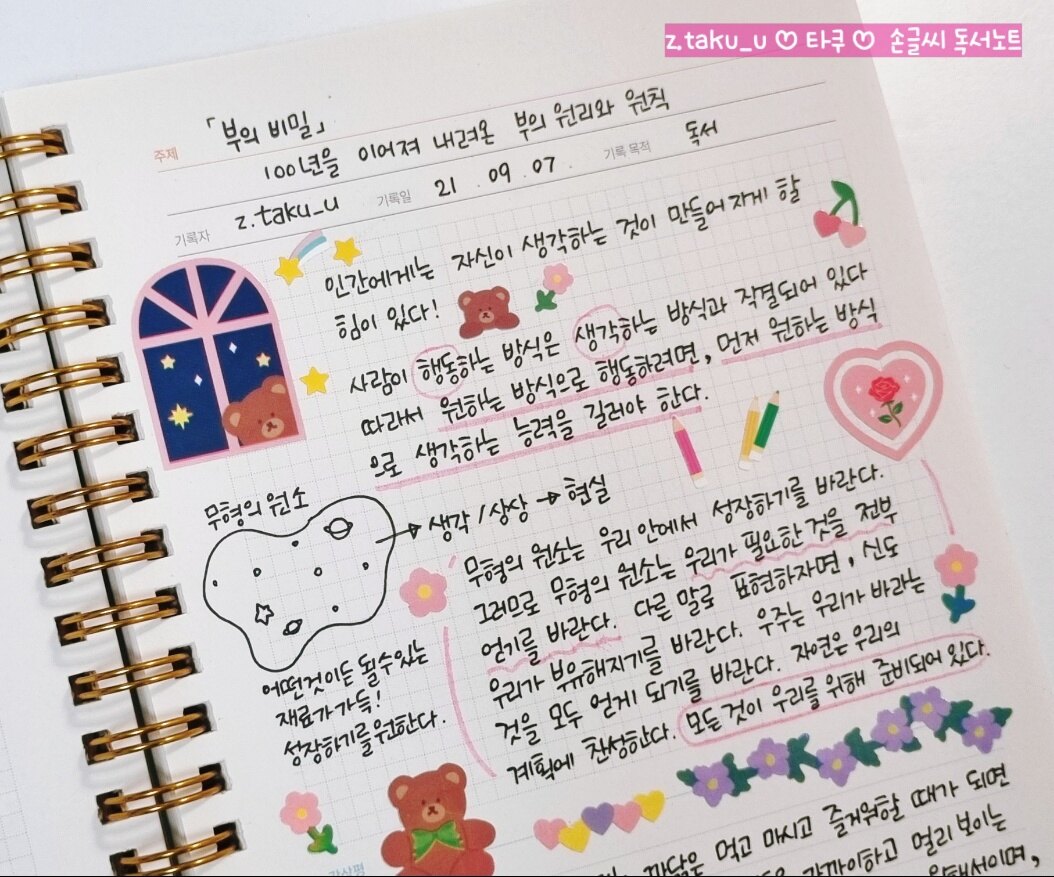 z.taku_u ♡ 타쿠 ♡ 손글씨 독서노트
주제 「부의 비밀」
100년을 이어져 내려온 부의 원리와 원칙
기록자 z.taku_u 기록일 21 . 09 . 07 . 기록 목적 독서
인간에게는 자신이 생각하는 것이 만들어지게 할
힘이 있다!
사람이 행동하는 방식은 생각하는 방식과 직결되어 있다
따라서 원하는 방식으로 행동하려면, 먼저 원하는 방식
으로 생각하는 능력을 길러야 한다.
무형의 원소
→ 생각 / 상상 → 현실
어떤것이든 될수있는
재료가 가득!
성장하기를 원한다.
무형의 원소는 우리 안에서 성장하기를 바란다.
그러므로 무형의 원소는 우리가 필요한 것을 전부
얻기를 바란다. 다른 말로 표현하자면, 신도
우리가 부유해지기를 바란다. 우주는 우리가 바라는
것을 모두 얻게 되기를 바란다. 자연은 우리의
계획에 찬성한다. 모든 것이 우리를 위해 준비되어 있다.
까닭은 먹고 마시고 즐거워할 때가 되면
가까이하고 멀리 보이는
위해서이며,